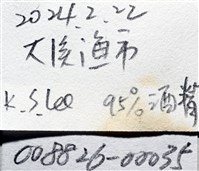 2024.2.22
大溪漁市
K.S.Lee 95%酒精
008826-00035